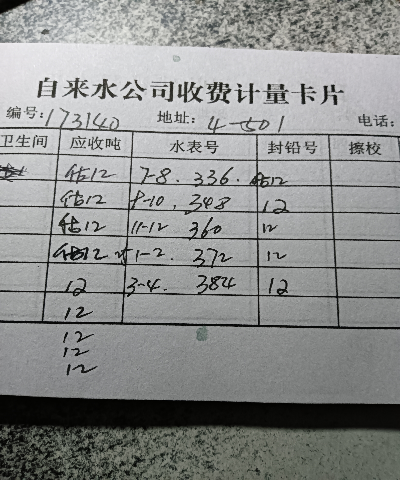 自来水公司收费计量卡片
编号:173140 地址: 4-501 电话:
卫生间 应收吨 水表号 封铅号 擦校
估12 7-8. 336. 估12
估12 9-10. 348 12
估12 11-12 360 12
估12 1-2. 372 12
12 3-4. 384 12
12
12
12
12